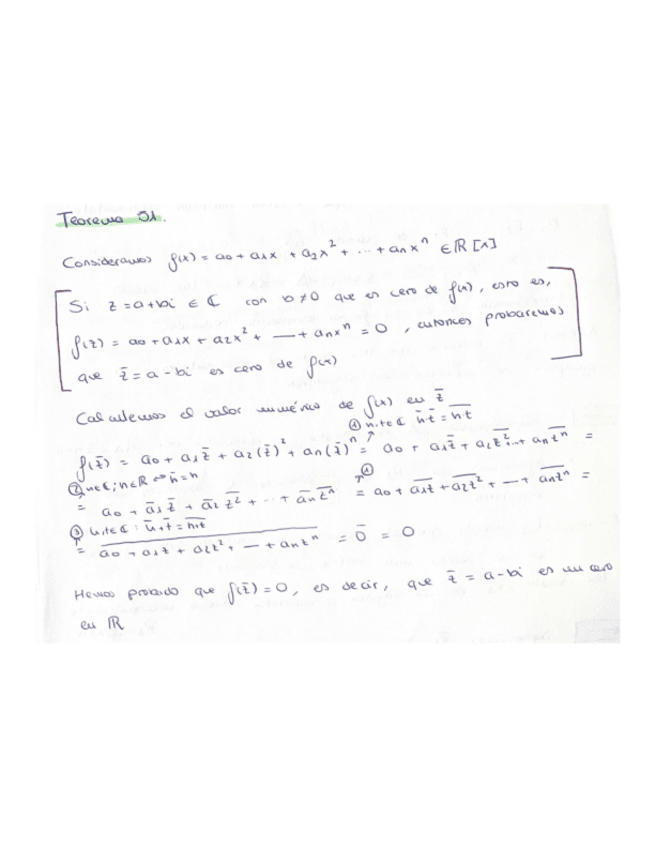 Teorema 51.
Consideramos f(x) = a0 + a1x + a2x² + ... + anxⁿ ∈ ℝ[x]
Si z = a+bi ∈ ℂ con b ≠ 0 que es cero de f(x), esto es,
f(z) = a0 + a1x + a2x² + — + anxⁿ = 0, entonces probaremos
que z̄ = a - bi es cero de f(x)
Calculemos el valor numérico de f(x) en z̄
① h,t∈ℂ h̄·t̄ = \overline{h·t}
f(z̄) = a0 + a1z̄ + a2(z̄)² + an(z̄)ⁿ = a0 + a1z̄ + a2\overline{z²} ... + an\overline{zⁿ} =
② h∈ℂ; h∈ℝ ⇔ h̄ = h
①
= a0 + ā1z̄ + ā2\overline{z²} + ... + ān\overline{zⁿ} = a0 + \overline{a1z} + \overline{a2z²} + — + \overline{anzⁿ} =
③ h,t∈ℂ: h̄ + t̄ = \overline{h+t}
= \overline{a0 + a1z + a2z² + — + anzⁿ} = 0̄ = 0
Hemos probado que f(z̄) = 0, es decir, que z̄ = a - bi es un cero
en ℝ